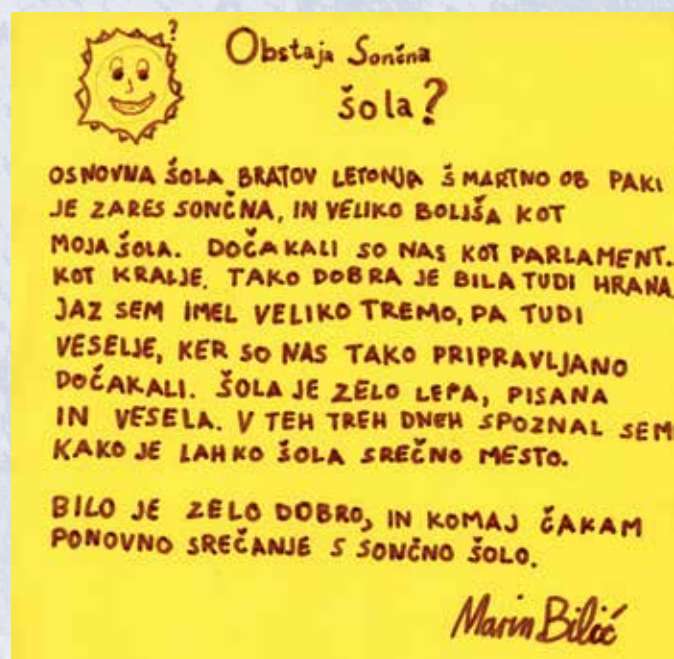 ?
Obstaja Sončna
šola?
OSNOVNA ŠOLA BRATOV LETONJA ŠMARTNO OB PAKI
JE ZARES SONČNA, IN VELIKO BOLJŠA KOT
MOJA ŠOLA. DOČAKALI SO NAS KOT PARLAMENT..
KOT KRALJE. TAKO DOBRA JE BILA TUDI HRANA
JAZ SEM IMEL VELIKO TREMO, PA TUDI
VESELJE, KER SO NAS TAKO PRIPRAVLJANO
DOČAKALI. ŠOLA JE ZELO LEPA, PISANA
IN VESELA. V TEH TREH DNEH SPOZNAL SEM
KAKO JE LAHKO ŠOLA SREČNO MESTO.
BILO JE ZELO DOBRO, IN KOMAJ ČAKAM
PONOVNO SREČANJE S SONČNO ŠOLO.
Marin Bilić